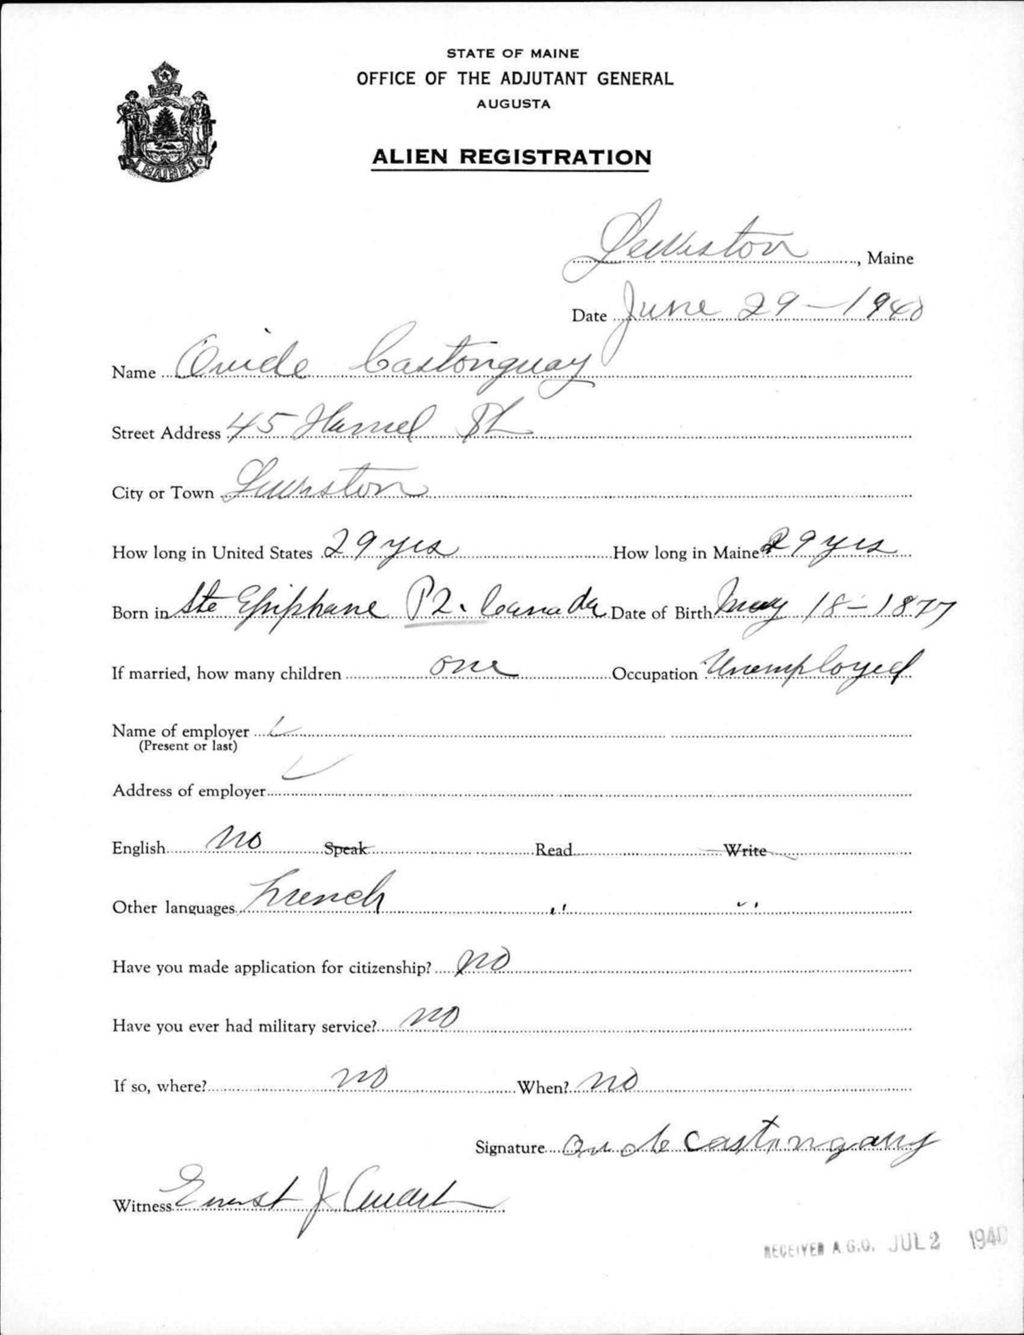 STATE OF MAINE
OFFICE OF THE ADJUTANT GENERAL
AUGUSTA
ALIEN REGISTRATION
MAINE
Lewiston, Maine
Date June 29-1940
Name Ovide Castonguay
Street Address 45 Hamel St
City or Town Lewiston
How long in United States 29 yrs How long in Maine 29 yrs
Born in Ste Epiphane P2. Canada Date of Birth May 18-1877
If married, how many children one Occupation Unemployed
Name of employer
(Present or last)
Address of employer
English No Speak Read Write
Other languages French " "
Have you made application for citizenship? no
Have you ever had military service? no
If so, where? no When? no
Signature Castongauy
Witness Ernest J
RECEIVED A.G.O. JUL 2 1940